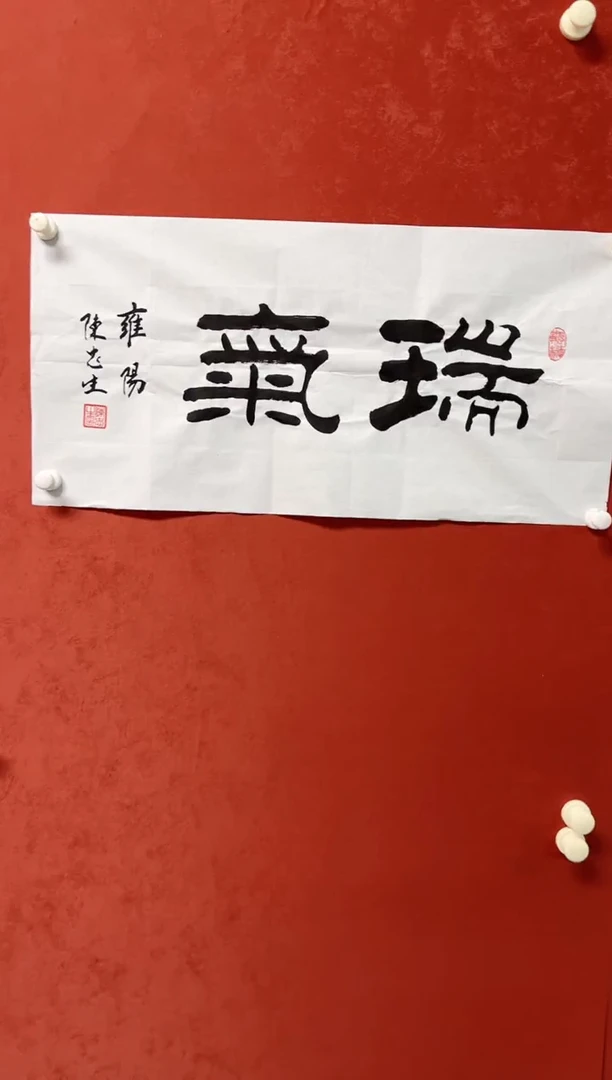 瑞氣
雍陽
陳志生